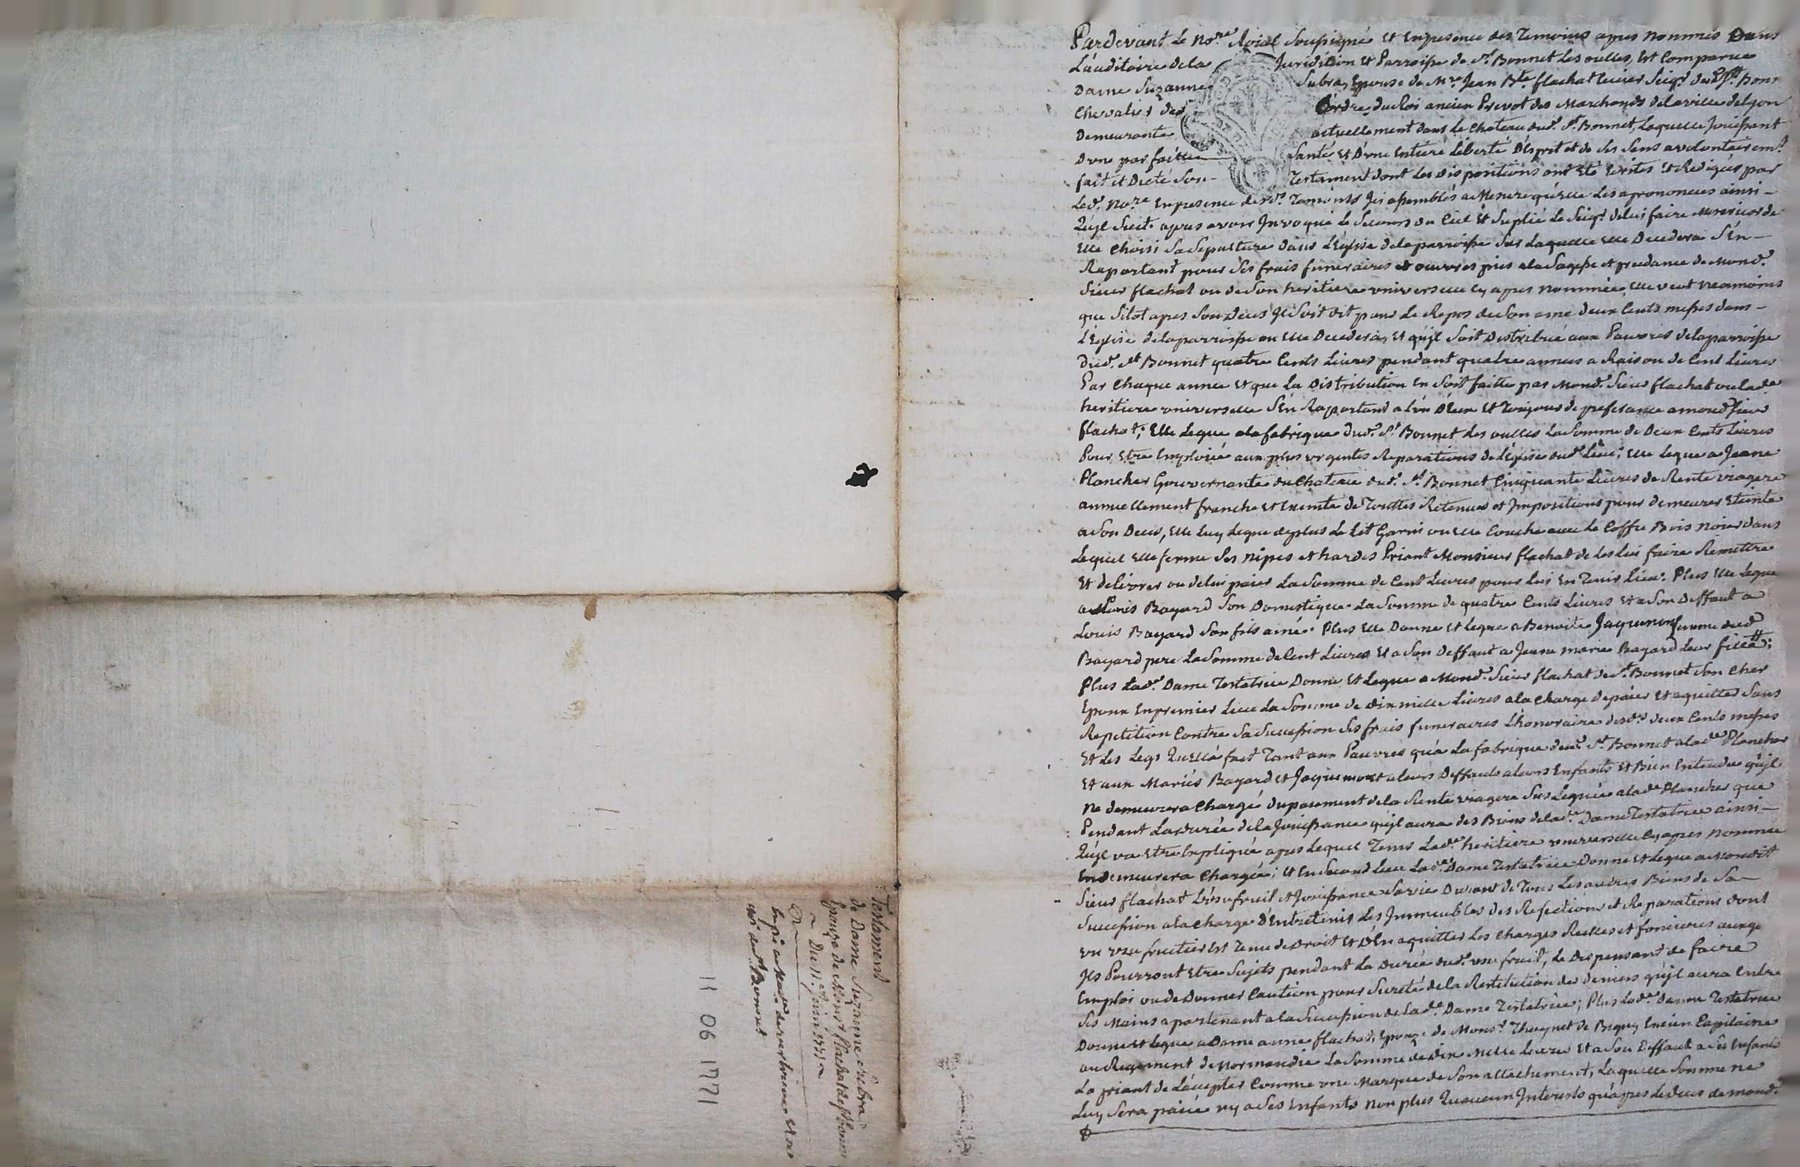 Pardevant Le No.re Roial Soussigné et Enpresence des Temoins apres nommés Dans
L'auditoire dela Juridition et Parroisse de S.t Bonnet Les oulles, Est Comparue
Dame Suzanne Subra, Epouse de M.re Jean B.te flachat Ecuier Seig.r dud.
Chevalier des Cordre du Roi ancien Prevot des Marchands delaville delyon
Demeurante actuellement dans Le Chateau dud. S.t Bonnet, Laquelle Jouissant
D'une parfaitte Santé Et D'une Entiere Liberté D'esprit et de Ses Sens a volontairem.t
fait et Dicté Son Testament dont Les dispositions ont Eté Ecrites et Redigées par
Led. No.re Enpresence desd. Temoints Jci assemblés a Mesure qu'elle Les a prononcees ainsi
Qu'yl Suit. apres avoir Jnvoqué le Secours du Ciel et Suplié Le Seig.r delui faire Misericorde
Elle Choisi Sa Sepulture dans L'Eglise delaparroisse Sur Laquelle Elle Decedera S'En
Raportant pour Ses frais funeraires et ouvres pies ala Sagesse et prudance de Mond.
Sieur flachat ou de Son heritiere universelle Cy apres nommée, Elle veut neamoins
que Sitot apres Son Déces Jl Soit dit pour Le Repos de Son ame deux Cents messes dans
L'Eglise delaparroisse ou Elle Decedera, Et qu'yl Soit Distribué aux Pauvres delaparroisse
Dud. S.t Bonnet quatre Cents Livres pendant quatre annees a Raison de Cent Livres
Par Chaque année Et que La Distribution En Soit faitte par Mond. Sieur flachat ou lad.
heritiere universelle S'En Raportant a l'un D'Eux Et Toujours de preferance a mond. Sieur
flachat; Elle Legue alafabrique dud. S.t Bonnet Les oulles La Somme de Deux Cents Livres
Pour Etre Emploiée aux plus urgentes Reparations de l'Eglise dud. Lieu; Elle Legue a Jeane
Plancher Gouvernante du Chateau dud. S.t Bonnet Cinquante Livres de Rente viagere
annuellement franche et Exemte de Touttes Retenues et Jmpositions pour demeurer Eteinte
a Son Deces, Elle Luy Legue deplus Le Lit Garni ou Elle Couche avec Le Coffre Bois noir dans
Lequel Elle ferme Ses nipes et hardes Priant Monsieur flachat de Les lui faire Remettre
Et delivrer ou delui paier La Somme de Cent Livres pour Lui En Tenir Lieu. Plus Elle Legue
a Bayard Son Domestique La Somme de quatre Cents Livres Et a Son Deffaut a
Louis Bayard Son fils ainé. Plus Elle Donne Et Legue a Benoite Jaquemont femme dud.
Bayard pere La Somme de Cent Livres Et a Son deffaut a Jeane marie Bayard Leur fille;
Plus Lad. Dame Testatrice Donne Et Legue a Mond. Sieur flachat de S.t Bonnet Son Cher
Epoux Enpremier Lieu La Somme de dix mille Livres ala Charge de paier Et aquitter Sans
Repetition Contre Sa Succession Ses frais funeraires L'honoraire desd. deux Cents messes
Et Les Legs Qu'Elle fait Tant aux Pauvres qu'a La fabrique dud. S.t Bonnet alad. Plancher
Et aux Mariés Bayard et Jaquemont a leurs Deffauts a leurs Enfants Et Bien Entendu qu'yl
ne demeurera Chargé dupaiement dela Rente viagere Sus Leguée a lad. Plancher que
Pendant La durée dela Jouissance qu'yl aura des Biens de lad. Dame Testatrice ainsi
Qu'yl va Etre Expliqué apres Lequel Tems Lad. heritiere universelle Cy apres nommée
En demeurera Chargée; Et En Second Lieu Lad. Dame Testatrice Donne Et Legue aumondit
Sieur flachat L'usufruit et Jouissance Sa vie Durant de Tous Les autres Biens de Sa
Succession a la Charge d'Entretenir Les Jmmeubles des Refections et Reparations dont
un usufruitier Est Tenu de Droit Et d'En aquitter Les Charges Reelles et foncieres auxq.
Jls Pourront Etre Sujets pendant La Durée dud. usufruit, Le Dispensant de faire
Emploi ou de Donner Caution pour Sureté dela Restitution des deniers qu'yl aura Entre
Ses Mains apartenant a la Succession de Lad. Dame Testatrice; Plus Lad. Dame Testatrice
Donne et Legue a Dame anne flachat Epouze de Mons.r Thoynet de Bigny Encien Capitaine
au Regiment de Normandie La Somme de dix Mille Livres Et a Son Deffaut a Ses Enfants
La priant de L'accepter Comme une Marque de Son attachement, Laquelle Somme ne
Luy Sera paiée ny a Ses Enfants non plus Qu'aucun Jnterests qu'apres Le deces de mond.
Testament
de Dame Suzanne Subra
Epouze de Mons.r flachat de S.t Bonnet
Du 11.e Juin 1771
11 06 1771